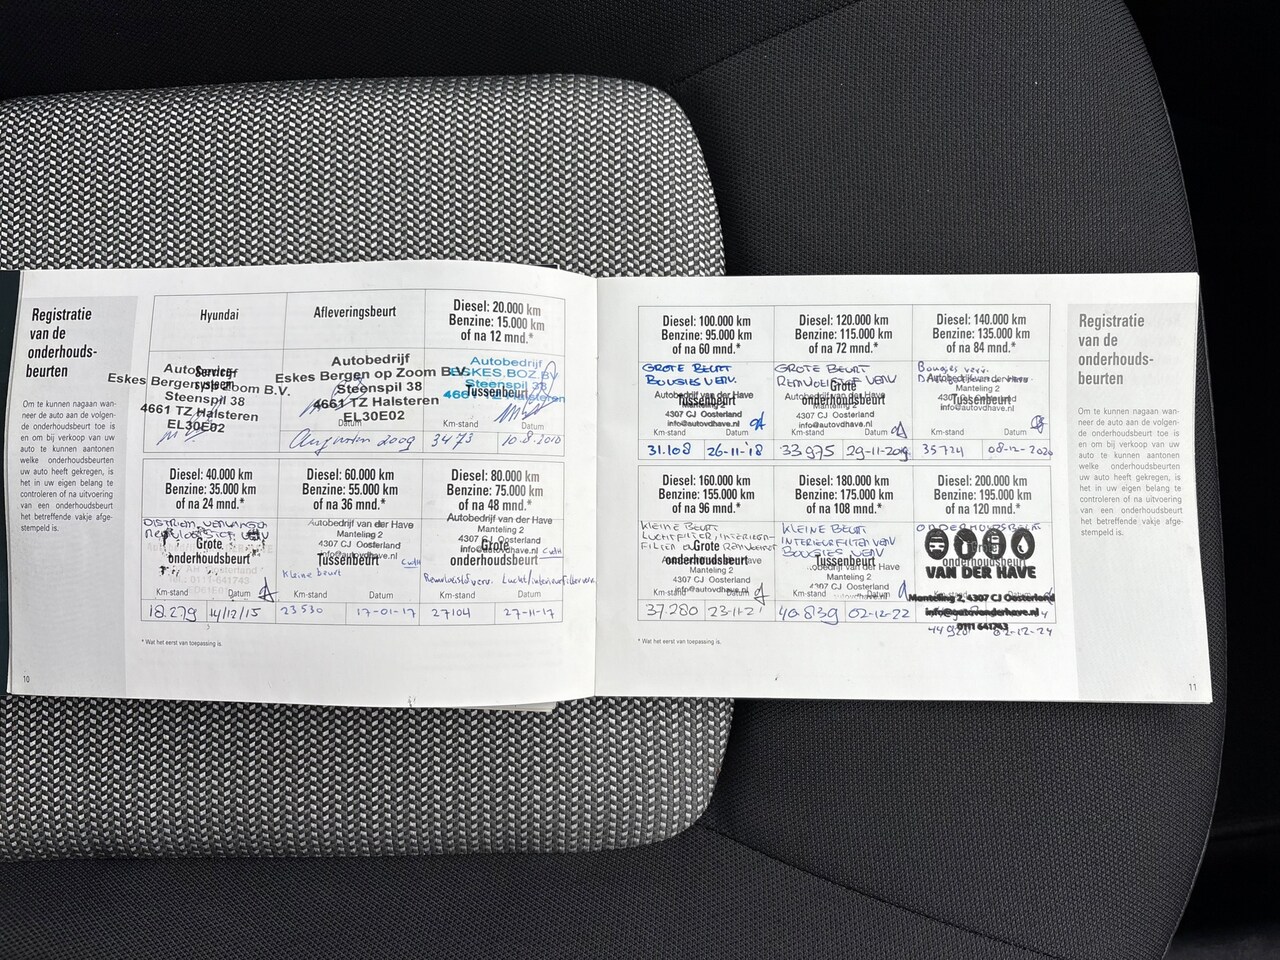 Registratie
van de
onderhouds-
beurten
Om te kunnen nagaan wan-
neer de auto aan de volgen-
de onderhoudsbeurt toe is
en om bij verkoop van uw
auto te kunnen aantonen
welke onderhoudsbeurten
uw auto heeft gekregen, is
het in uw eigen belang te
controleren of na uitvoering
van een onderhoudsbeurt
het betreffende vakje afge-
stempeld is.
10
Hyundai
Service-
systeem
Autobedrijf
Eskes Bergen op Zoom B.V.
Steenspil 38
4661 TZ Halsteren
EL30E02
Afleveringsbeurt
Autobedrijf
Eskes Bergen op Zoom B.V.
Steenspil 38
4661 TZ Halsteren
EL30E02
Datum
Augustus 2009
Diesel: 20.000 km
Benzine: 15.000 km
of na 12 mnd.*
Autobedrijf
ESKES.BOZ.BV
Steenspil 38
4661 TZ Halsteren
Tussenbeurt
Km-stand Datum
3473 10.8.2010
Diesel: 40.000 km
Benzine: 35.000 km
of na 24 mnd.*
Grote
onderhoudsbeurt
Km-stand Datum
18.279 14/12/15
Diesel: 60.000 km
Benzine: 55.000 km
of na 36 mnd.*
Autobedrijf van der Have
Manteling 2
4307 CJ Oosterland
info@autovdhave.nl
Tussenbeurt
Kleine beurt
Km-stand Datum
23530 17-01-17
Diesel: 80.000 km
Benzine: 75.000 km
of na 48 mnd.*
Autobedrijf van der Have
Manteling 2
4307 CJ Oosterland
info@autovdhave.nl
Grote
onderhoudsbeurt
Km-stand Datum
27104 27-11-17
* Wat het eerst van toepassing is.
Diesel: 100.000 km
Benzine: 95.000 km
of na 60 mnd.*
GROTE BEURT
BOUGIES VERV.
Autobedrijf van der Have
Tussenbeurt
Manteling 2
4307 CJ Oosterland
info@autovdhave.nl
Km-stand Datum
31.108 26-11-'18
Diesel: 120.000 km
Benzine: 115.000 km
of na 72 mnd.*
GROTE BEURT
REMVLOEISTOF VERV
Grote
onderhoudsbeurt
Autobedrijf van der Have
Manteling 2
4307 CJ Oosterland
info@autovdhave.nl
Km-stand Datum
33975 29-11-2019
Diesel: 140.000 km
Benzine: 135.000 km
of na 84 mnd.*
Bougies verv.
Autobedrijf van der Have
Manteling 2
Tussenbeurt
4307 CJ Oosterland
info@autovdhave.nl
Km-stand Datum
35724 08-12-2020
Diesel: 160.000 km
Benzine: 155.000 km
of na 96 mnd.*
KLEINE BEURT
LUCHTFILTER, INTERIEUR-
Grote
onderhoudsbeurt
Manteling 2
4307 CJ Oosterland
info@autovdhave.nl
Km-stand Datum
37280 23-11-21
Diesel: 180.000 km
Benzine: 175.000 km
of na 108 mnd.*
KLEINE BEURT
INTERIEURFILTER VERV
BOUGIES VERV
Tussenbeurt
Autobedrijf van der Have
Manteling 2
4307 CJ Oosterland
info@autovdhave.nl
Km-stand Datum
40.839 02-12-22
Diesel: 200.000 km
Benzine: 195.000 km
of na 120 mnd.*
ONDERHOUDSBEURT
VAN DER HAVE
Manteling 2, 4307 CJ Oosterland
info@autovanderhave.nl
0111 641743
02-12-24
* Wat het eerst van toepassing is.
Registratie
van de
onderhouds-
beurten
Om te kunnen nagaan wan-
neer de auto aan de volgen-
de onderhoudsbeurt toe is
en om bij verkoop van uw
auto te kunnen aantonen
welke onderhoudsbeurten
uw auto heeft gekregen, is
het in uw eigen belang te
controleren of na uitvoering
van een onderhoudsbeurt
het betreffende vakje afge-
stempeld is.
11